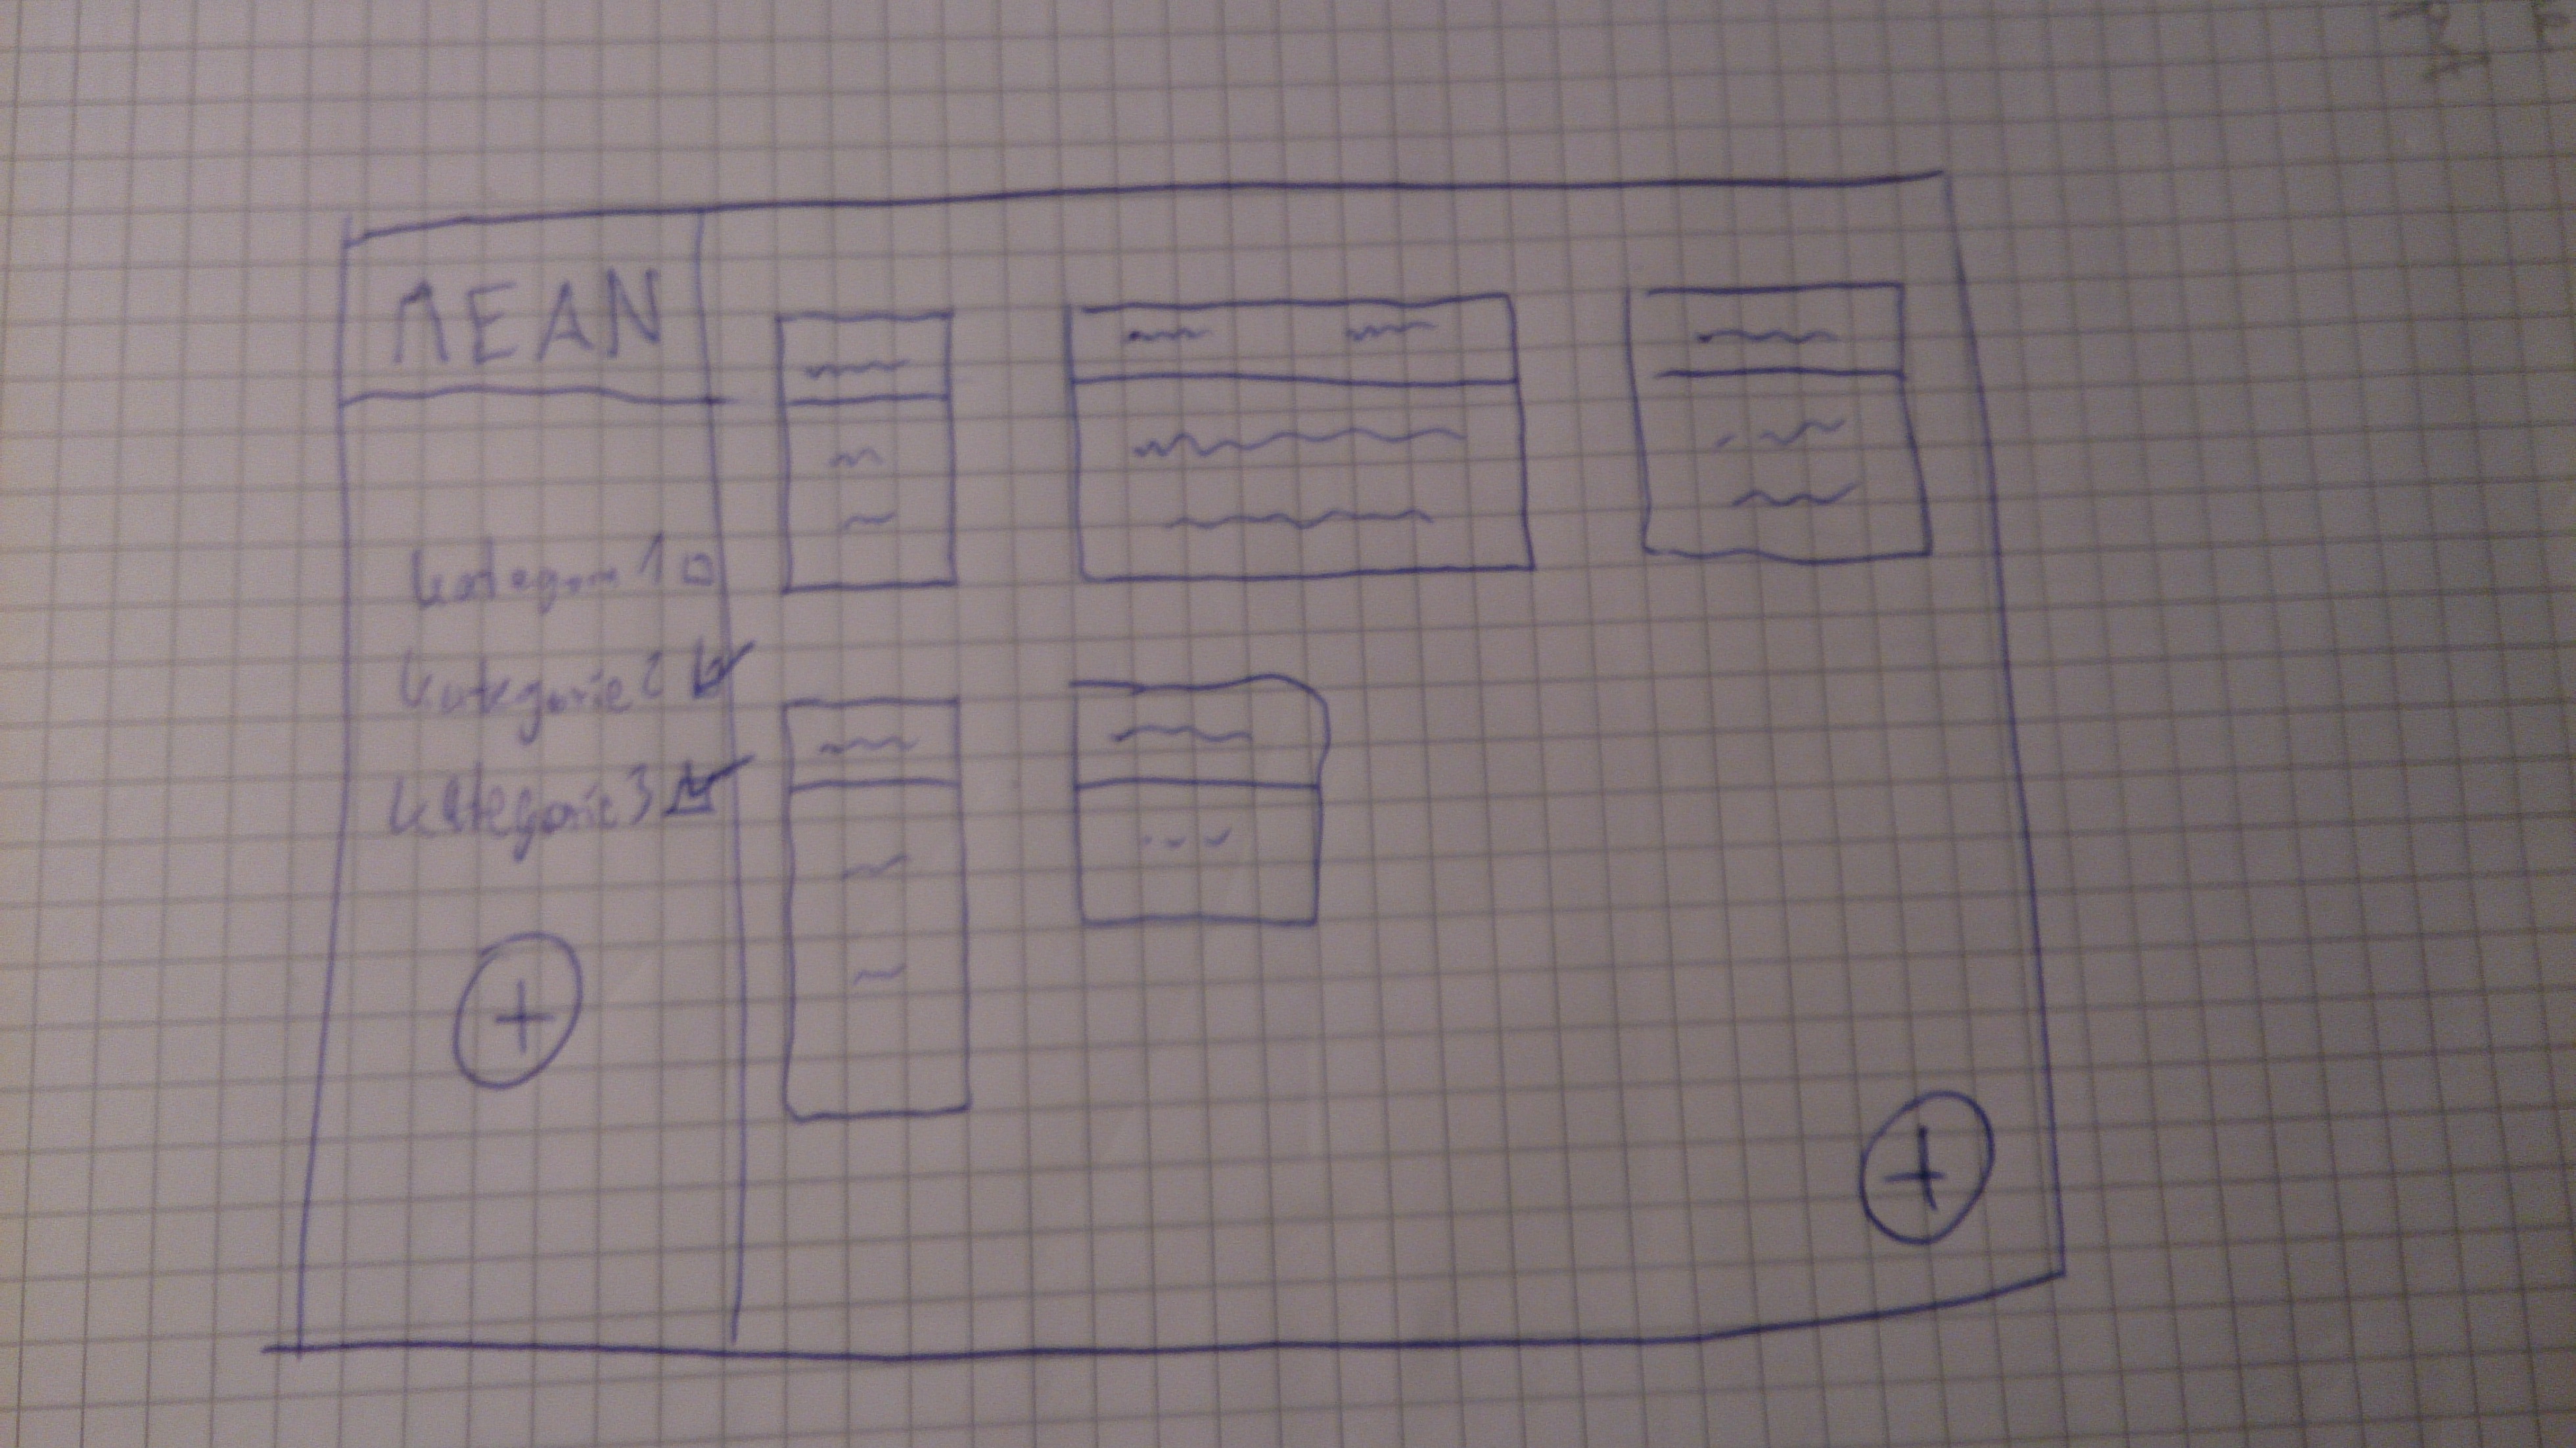 MEAN
Kategorie 1
Kategorie 2
Kategorie 3